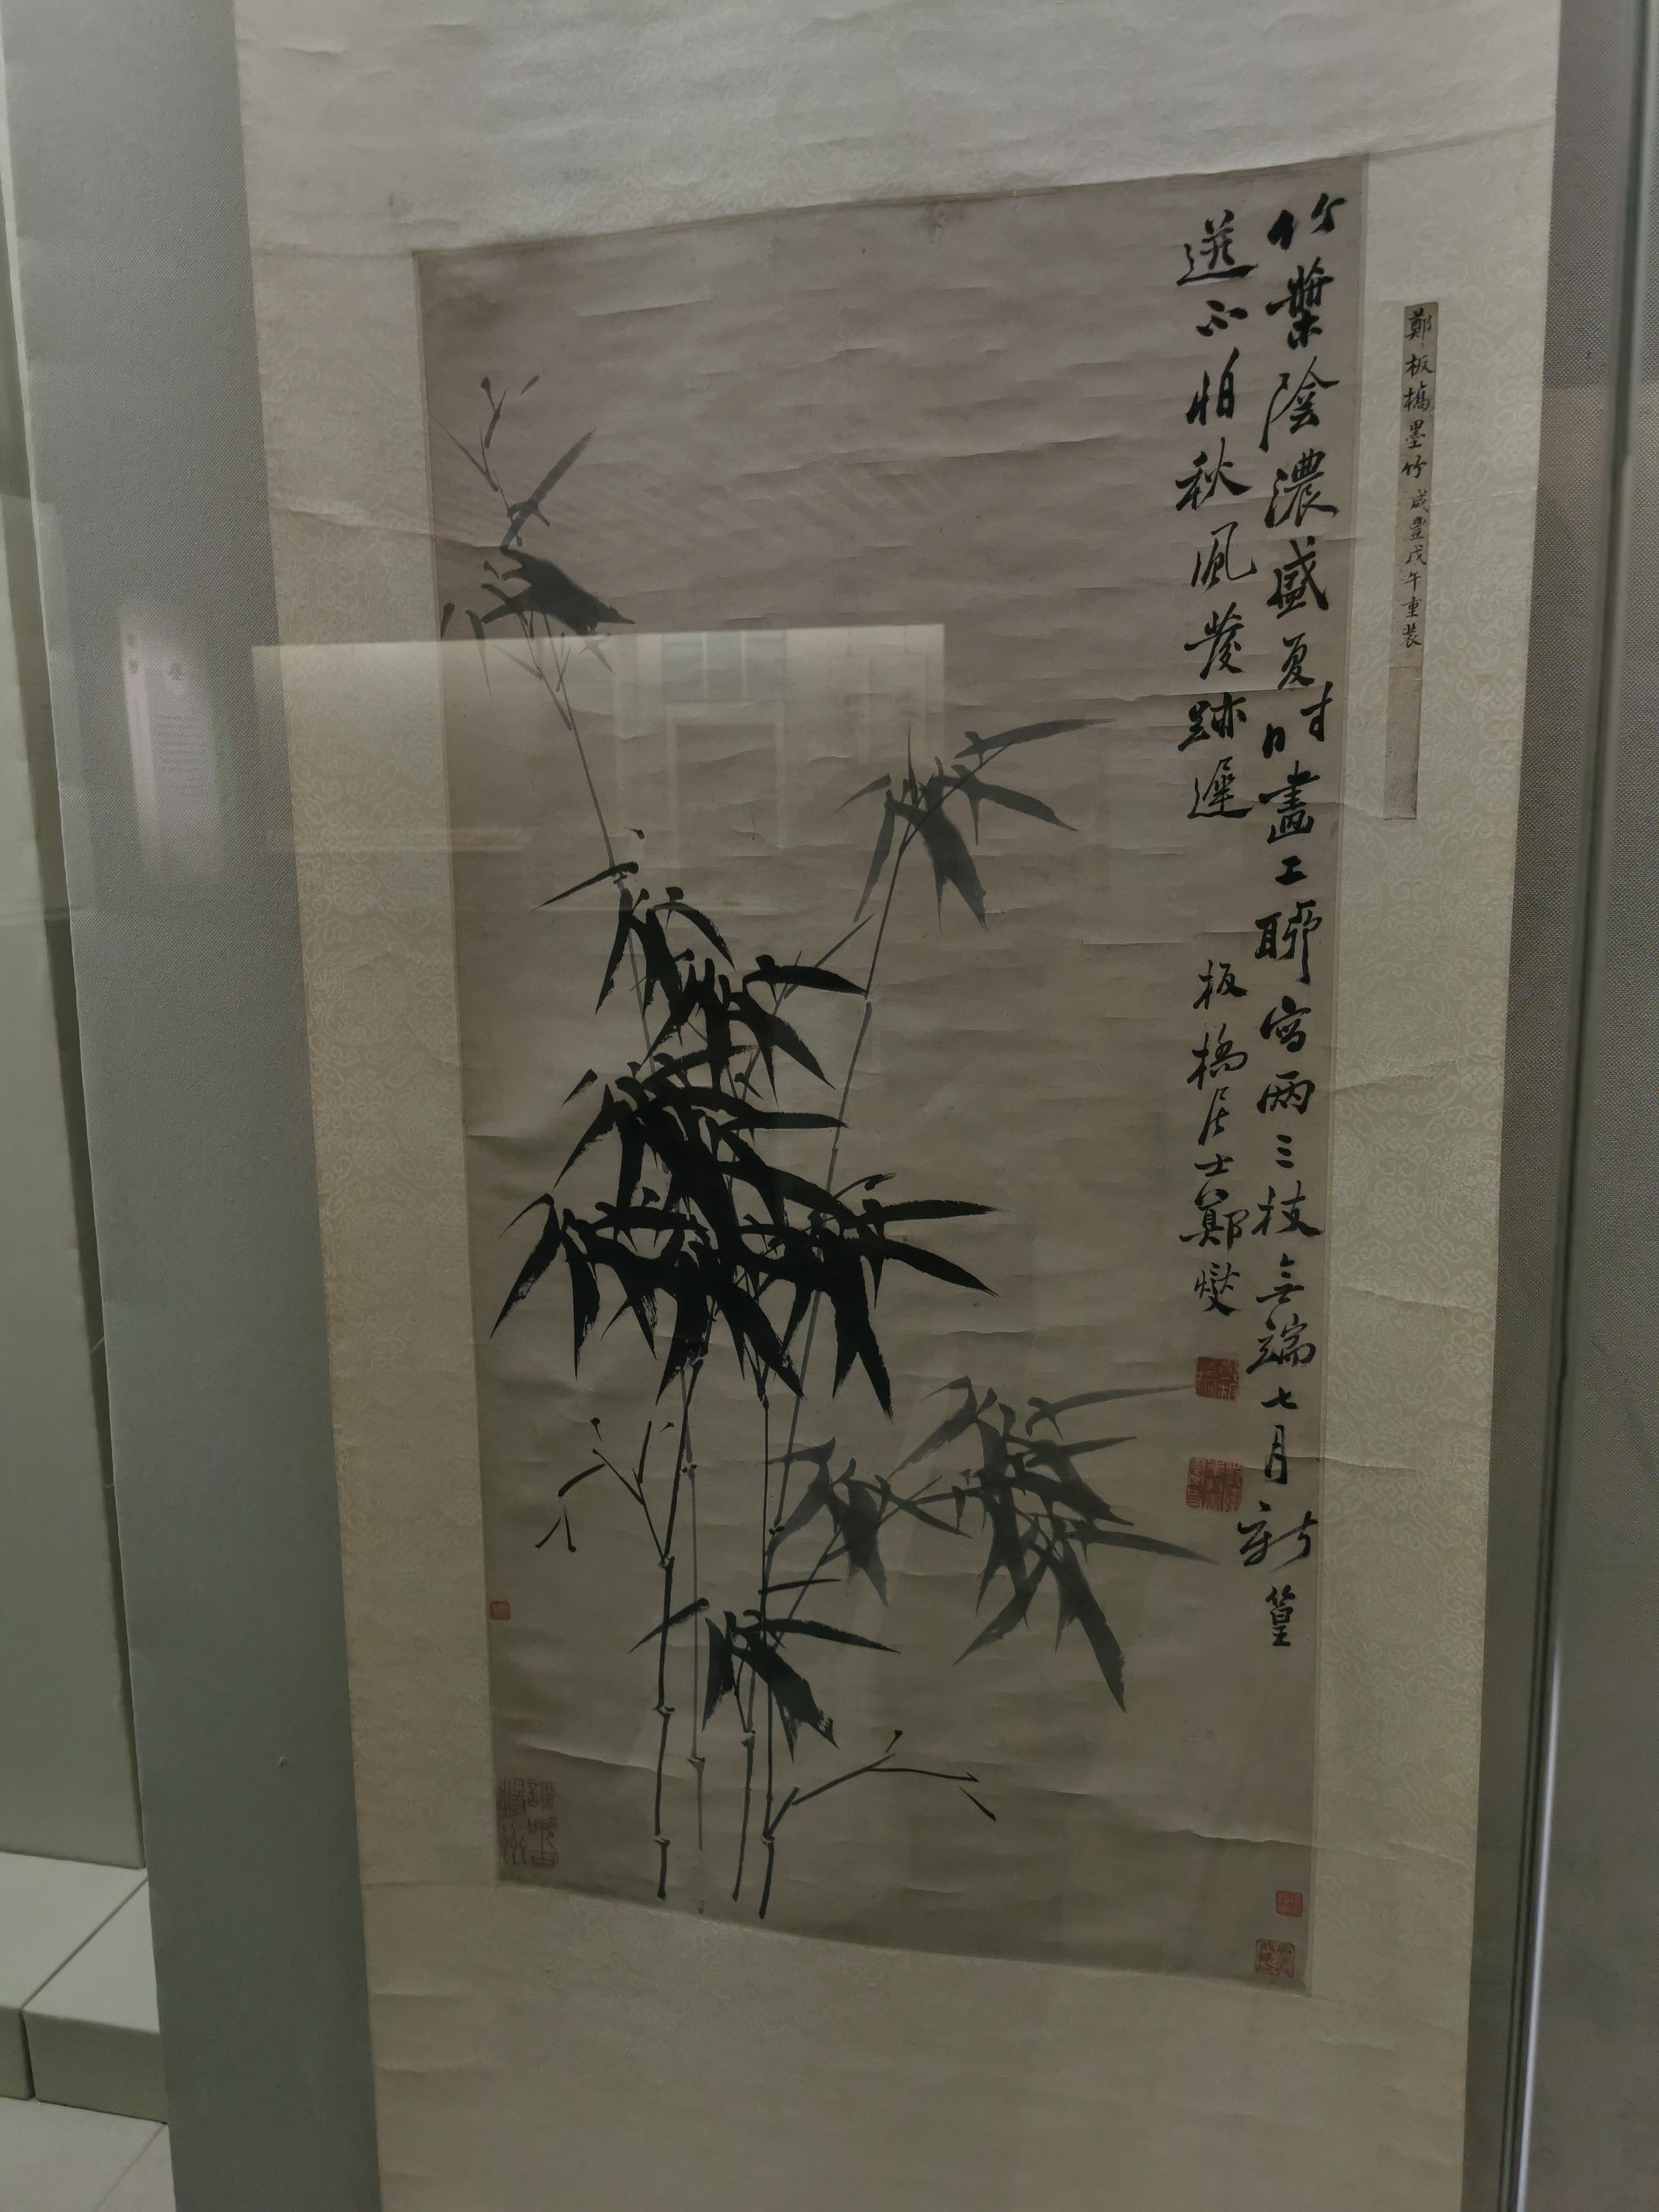 鄭板橋墨竹 咸豐戊午重裝
竹葉陰濃盛夏時畫工聊寫兩三枝無端七月新篁
迸不怕秋風發跡遲 板橋居士鄭燮